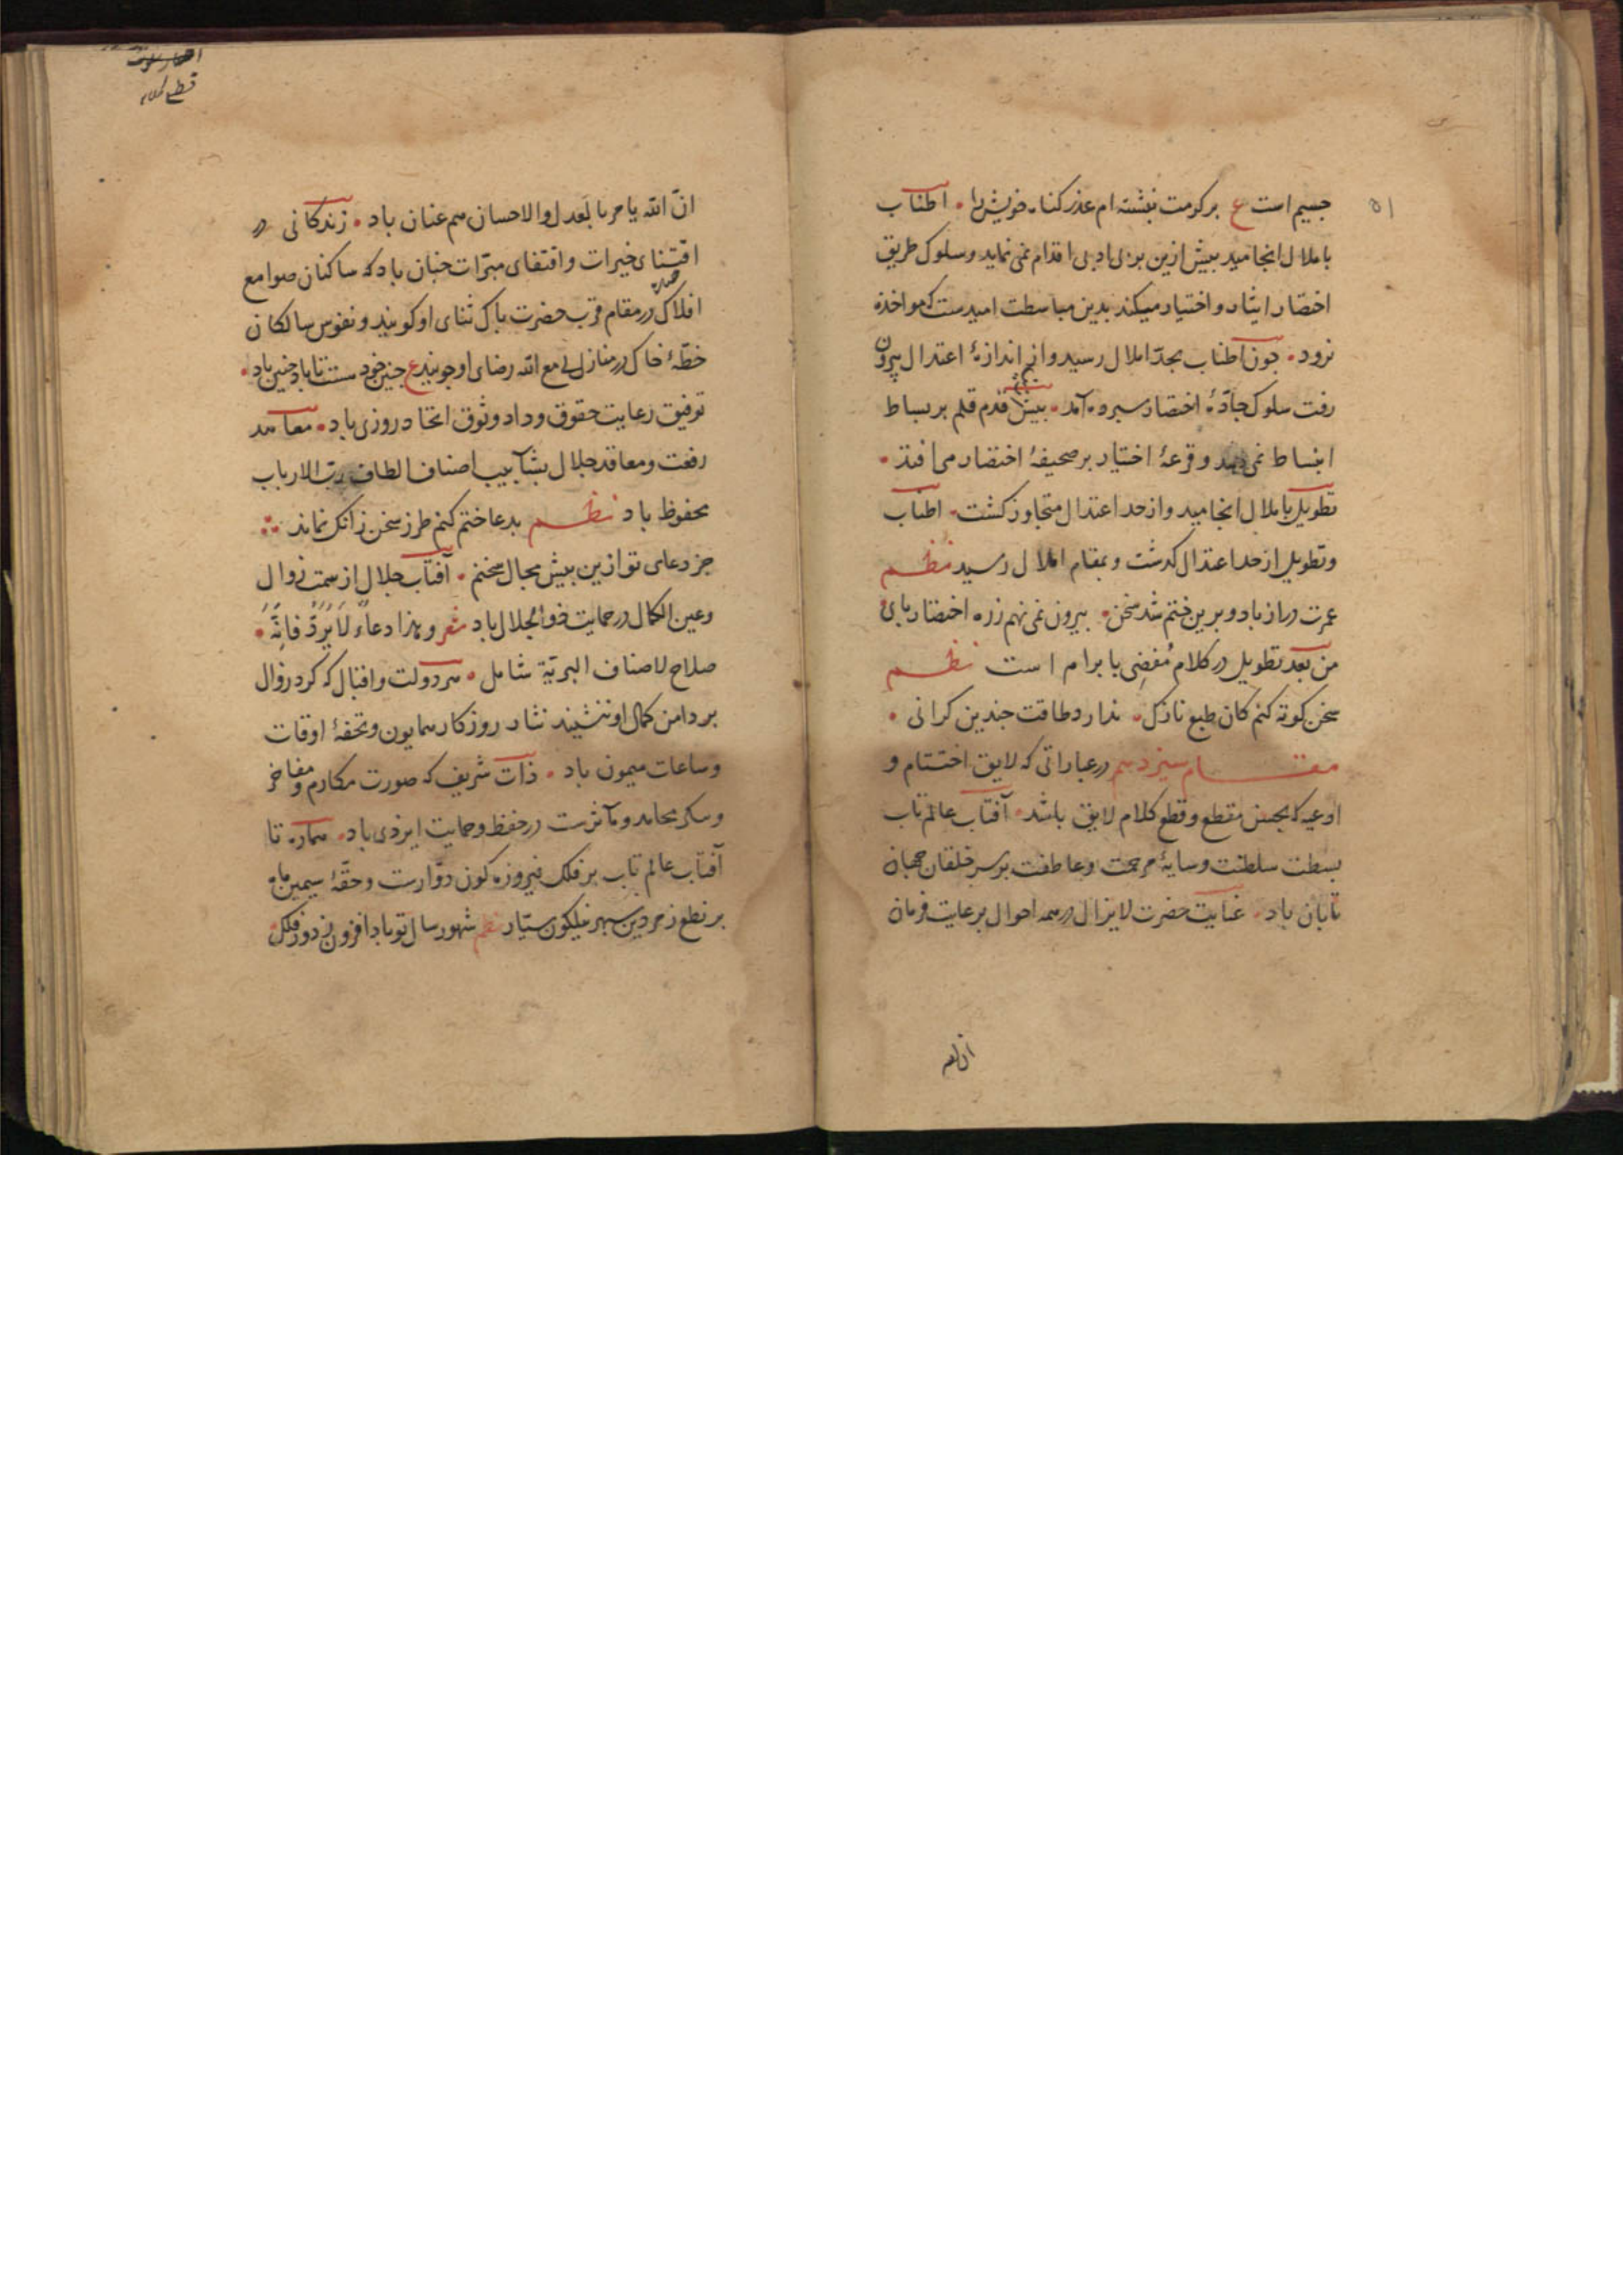 ۵۱
جسیم است ع بر کرمت نبشته ام عذر کناه خویش را • اطناب
باملال انجامید بیش ازین بر بی ادبی اقدام نمی نماید و سلوک طریق
اختصار ایثار و اختیار میکند بدین مباسطت امیدست که مواخذه
نرود • جون اطناب بحدّ املال رسید و از اندازهٔ اعتدال بیرون
رفت سلوک جادّهٔ اختصار سپرده آمد • بیش قدم قلم بر بساط
انبساط نمی نهد و قرعهٔ اختیار بر صحیفهٔ اختصار می افتد •
تطویل باملال انجامید و از حد اعتدال متجاوز کشت • اطناب
و تطویل از حد اعتدال کذشت و بمقام املال رسید نظم
عمرت دراز باد و برین ختم شد سخن • بیرون نمی نهم زره اختصار بای
من بعد تطویل در کلام مُفضِی بابرام است نظم
سخن کوته کنم کان طبع نازک • ندارد طاقت جندین کرانی •
مقام سیزدهم در عباراتی که لایق اختتام و
ادعیه که بحسن مقطع و قطع کلام لایق باشد • آفتاب عالم تاب
بسطت سلطنت و سایهٔ مرحمت و عاطفت بر سر خلقان جهان
تابان باد • عنایت حضرت لایزال در همه احوال برعایت فرمان
قطع کلام
انّ الله یامر بالعدل والاحسان هم عنان باد • زندکانی در
اقتنای خیرات و اقتفای مبرّات جنان باد که ساکنان صوامع
افلاک در مقام قرب حضرت باک ثنای او کویند و نفوس سالکان
خطّهٔ خاک در منازل لی مع الله رضای او جویند ع جنین خود هست تا باد جنین باد •
توفیق رعایت حقوق وداد و وثوق اتحاد روزی باد • معاهد
رفعت و معاقد جلال بشآبیب اصناف الطاف ربّ الارباب
محفوظ باد نظم بدعا ختم کنم طرز سخن زانک نماند
جز دعای تو ازین بیش مجال سخنم • آفتاب جلال از سمت زوال
و عین الکمال در حمایت ذو الجلال باد شعر و هذا دعاءٌ لَا یُرَدُّ فَاِنَّهُ •
صلاح لاصناف البریّة شامل • هر دولت و اقبال که کرد زوال
بر دامن کمال او ننشیند نثار روزکار همایون و تحفهٔ اوقات
و ساعات میمون باد • ذات شریف که صورت مکارم و مفاخر
و محامد و مآثرست در حفظ و حمایت ایزدی باد • هماره تا
آفتاب عالم تاب بر فلک فیروزه کون دوّارست و حقّهٔ سیمین ماه
بر نطع زمردین سپهر نیلکون سیّار نظم شهور سال تو باد افزون ز دور فلک •